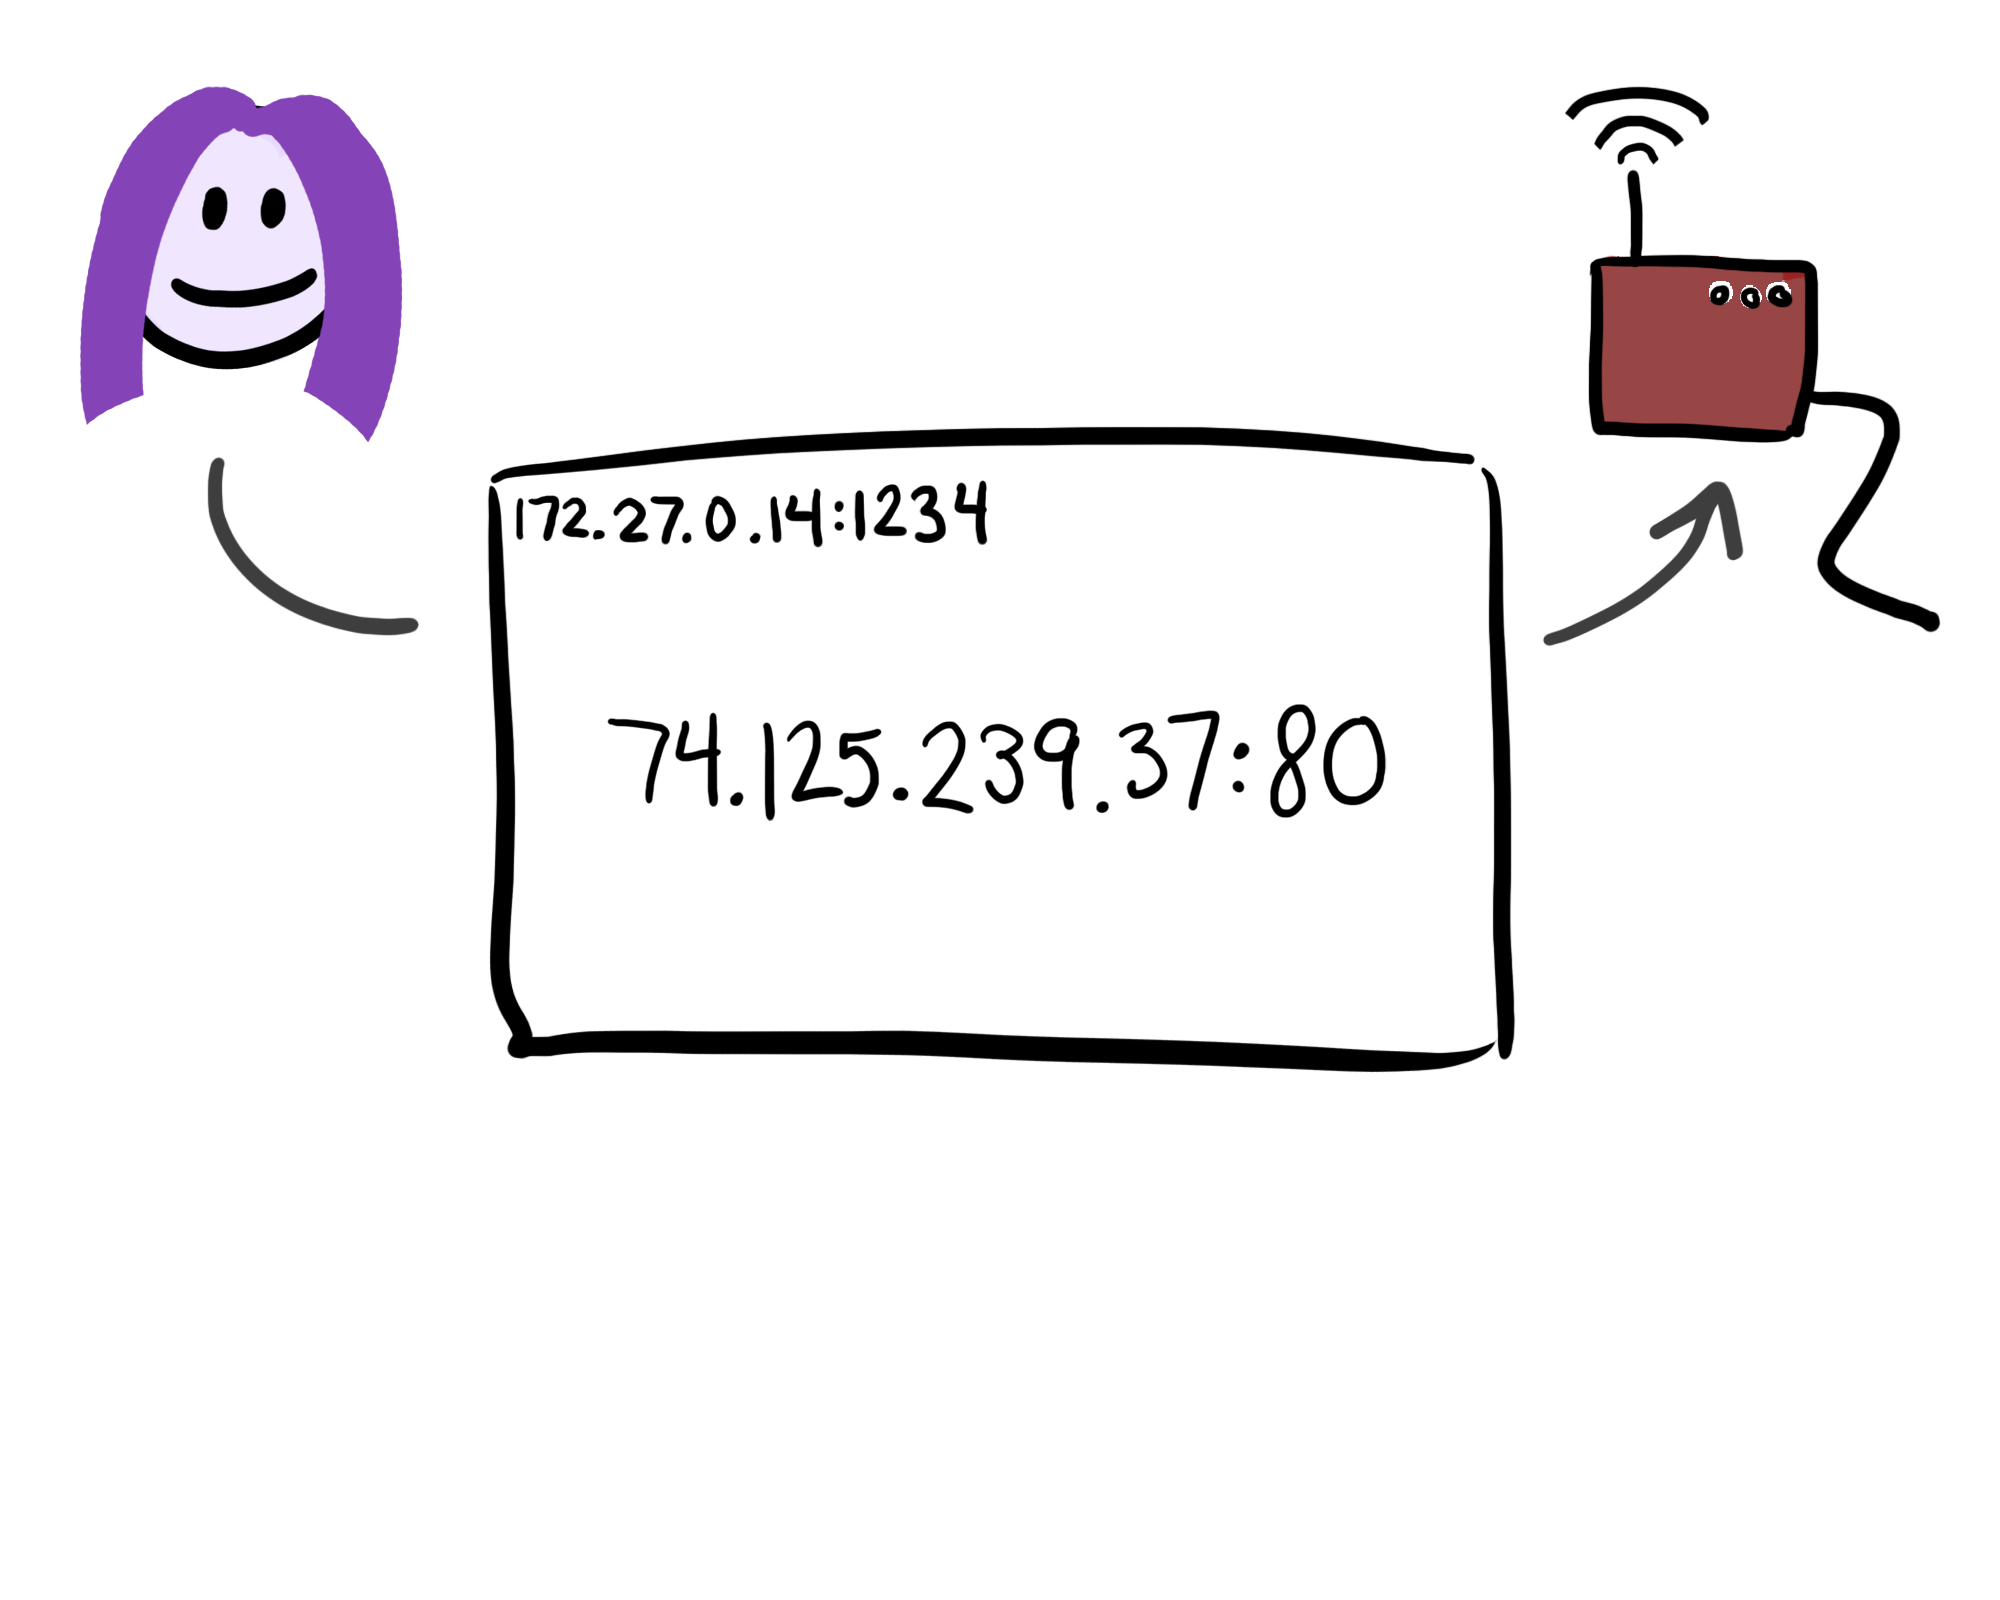 172.27.0.14:1234
74.125.239.37:80